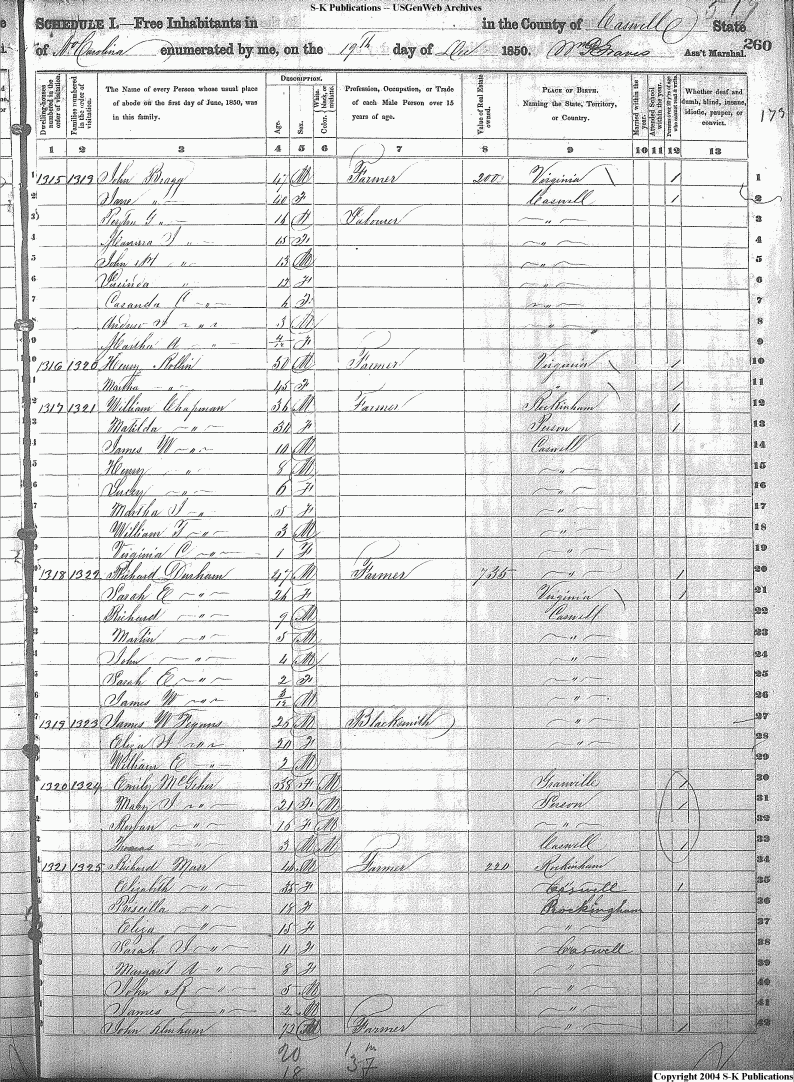 S-K Publications -- USGenWeb Archives
SCHEDULE I.—Free Inhabitants in in the County of Caswell State
of No Carolina enumerated by me, on the 19th day of Dec 1850. Wm Graves Ass't Marshal.
260
173
Dwelling-houses numbered in the order of visitation.
Families numbered in the order of visitation.
The Name of every Person whose usual place of abode on the first day of June, 1850, was in this family.
DESCRIPTION.
Age.
Sex.
White, black, or mulatto. Color.
Profession, Occupation, or Trade of each Male Person over 15 years of age.
Value of Real Estate owned.
PLACE OF BIRTH. Naming the State, Territory, or Country.
Married within the year.
Attended School within the year.
Persons over 20 y'rs of age who cannot read & write.
Whether deaf and dumb, blind, insane, idiotic, pauper, or convict.
1 2 3 4 5 6 7 8 9 10 11 12 13
1 1315 1319 John Bragg 47 M Farmer 200 Virginia 1 1
2 Jane " 40 F Caswell 1 2
3 G " 16 Labourer " 3
4 J " 15 F " 4
5 John " 13 M " 5
6 " 12 F " 6
7 Casanda C " 6 F " 7
8 Andrew J " 3 M " 8
9 Martha A " 4/12 F 9
10 1316 1320 Henry Rollin 50 M Farmer Virginia 1 10
11 Martha " 45 F " 1 11
12 1317 1321 William Chapman 36 M Farmer Rockinham 1 12
13 Matilda " 30 F Person 1 13
14 James W " 10 M Caswell 14
15 Henry " 8 M " 15
16 " 6 F " 16
17 Martha J " 5 F " 17
18 William T " 3 M " 18
19 Virginia C " 1 F " 19
20 1318 1322 Richard Durham 47 M Farmer 735 " 1 20
21 Sarah E " 26 F Virginia 1 21
22 Richard " 9 M Caswell 22
23 Martin " 5 M " 23
24 John " 4 M " 24
25 Sarah E " 2 F " 25
26 James W " 3/12 M " 26
27 1319 1323 James W 25 M Blacksmith " 27
28 Eliza J " 20 F " 28
29 William E " 2 M 29
30 1320 1324 Emily 38 F M Granville 1 30
31 Mary J " 21 F M Person 1 31
32 " 16 F M " 32
33 Thomas " 3 M M Caswell 1 33
34 1321 1325 Richard Marr 46 M Farmer 220 Rockinham 34
35 Elizabeth " 35 F Caswell 1 35
36 Priscilla " 18 F Rockingham 36
37 Eliza " 15 F " 37
38 Sarah J " 11 F Caswell 38
39 Margaret A " 8 F " 39
40 John R " 5 M " 40
41 James " 2 M " 41
42 John 73 M Farmer " 1 42
20
18
37
Copyright 2004 S-K Publications